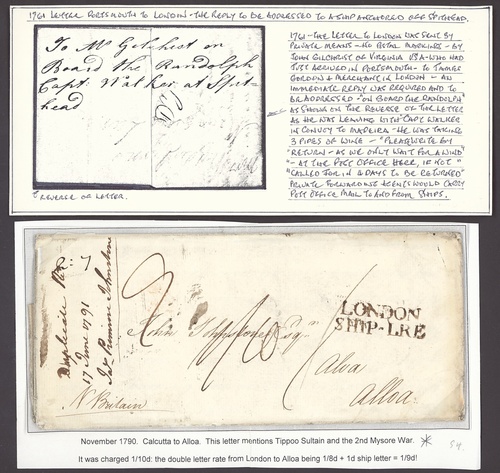 1761 LETTER PORTSMOUTH TO LONDON - THE REPLY TO BE ADDRESSED TO A SHIP ANCHORED OFF SPITHEAD.
To Mr Gilchrist on
Board the Randolph
Capt Walker at Spit-
head
REVERSE OF LETTER.
1761 - THE LETTER TO LONDON WAS SENT BY
PRIVATE MEANS - NO POSTAL MARKINGS - BY
JOHN GILCHRIST OF VIRGINIA USA - WHO HAD
JUST ARRIVED IN PORTSMOUTH - TO JAMES
GORDON A MERCHANT IN LONDON - AN
IMMEDIATE REPLY WAS REQUIRED AND TO
BE ADDRESSED "ON BOARD THE RANDOLPH"
AS SHOWN ON THE REVERSE OF THE LETTER
AS HE WAS LEAVING WITH CAPT WALKER
IN CONVOY TO MADEIRA - HE WAS TAKING
3 PIPES OF WINE - "PLEASE WRITE BY
RETURN - AS WE ONLY WAIT FOR A WIND"
"- AT THE POST OFFICE HERE, IF NOT"
"CALLED FOR IN 4 DAYS TO BE RETURNED"
PRIVATE FORWARDING AGENTS WOULD CARRY
POST OFFICE MAIL TO AND FROM SHIPS.
Duplicate
17 June 1791
Johnstone
N Britain
John Johnstone Esqr
Alva
Alloa.
1/10
LONDON
SHIP-LRE
November 1790. Calcutta to Alloa. This letter mentions Tippoo Sultain and the 2nd Mysore War.
It was charged 1/10d: the double letter rate from London to Alloa being 1/8d + 1d ship letter = 1/9d!